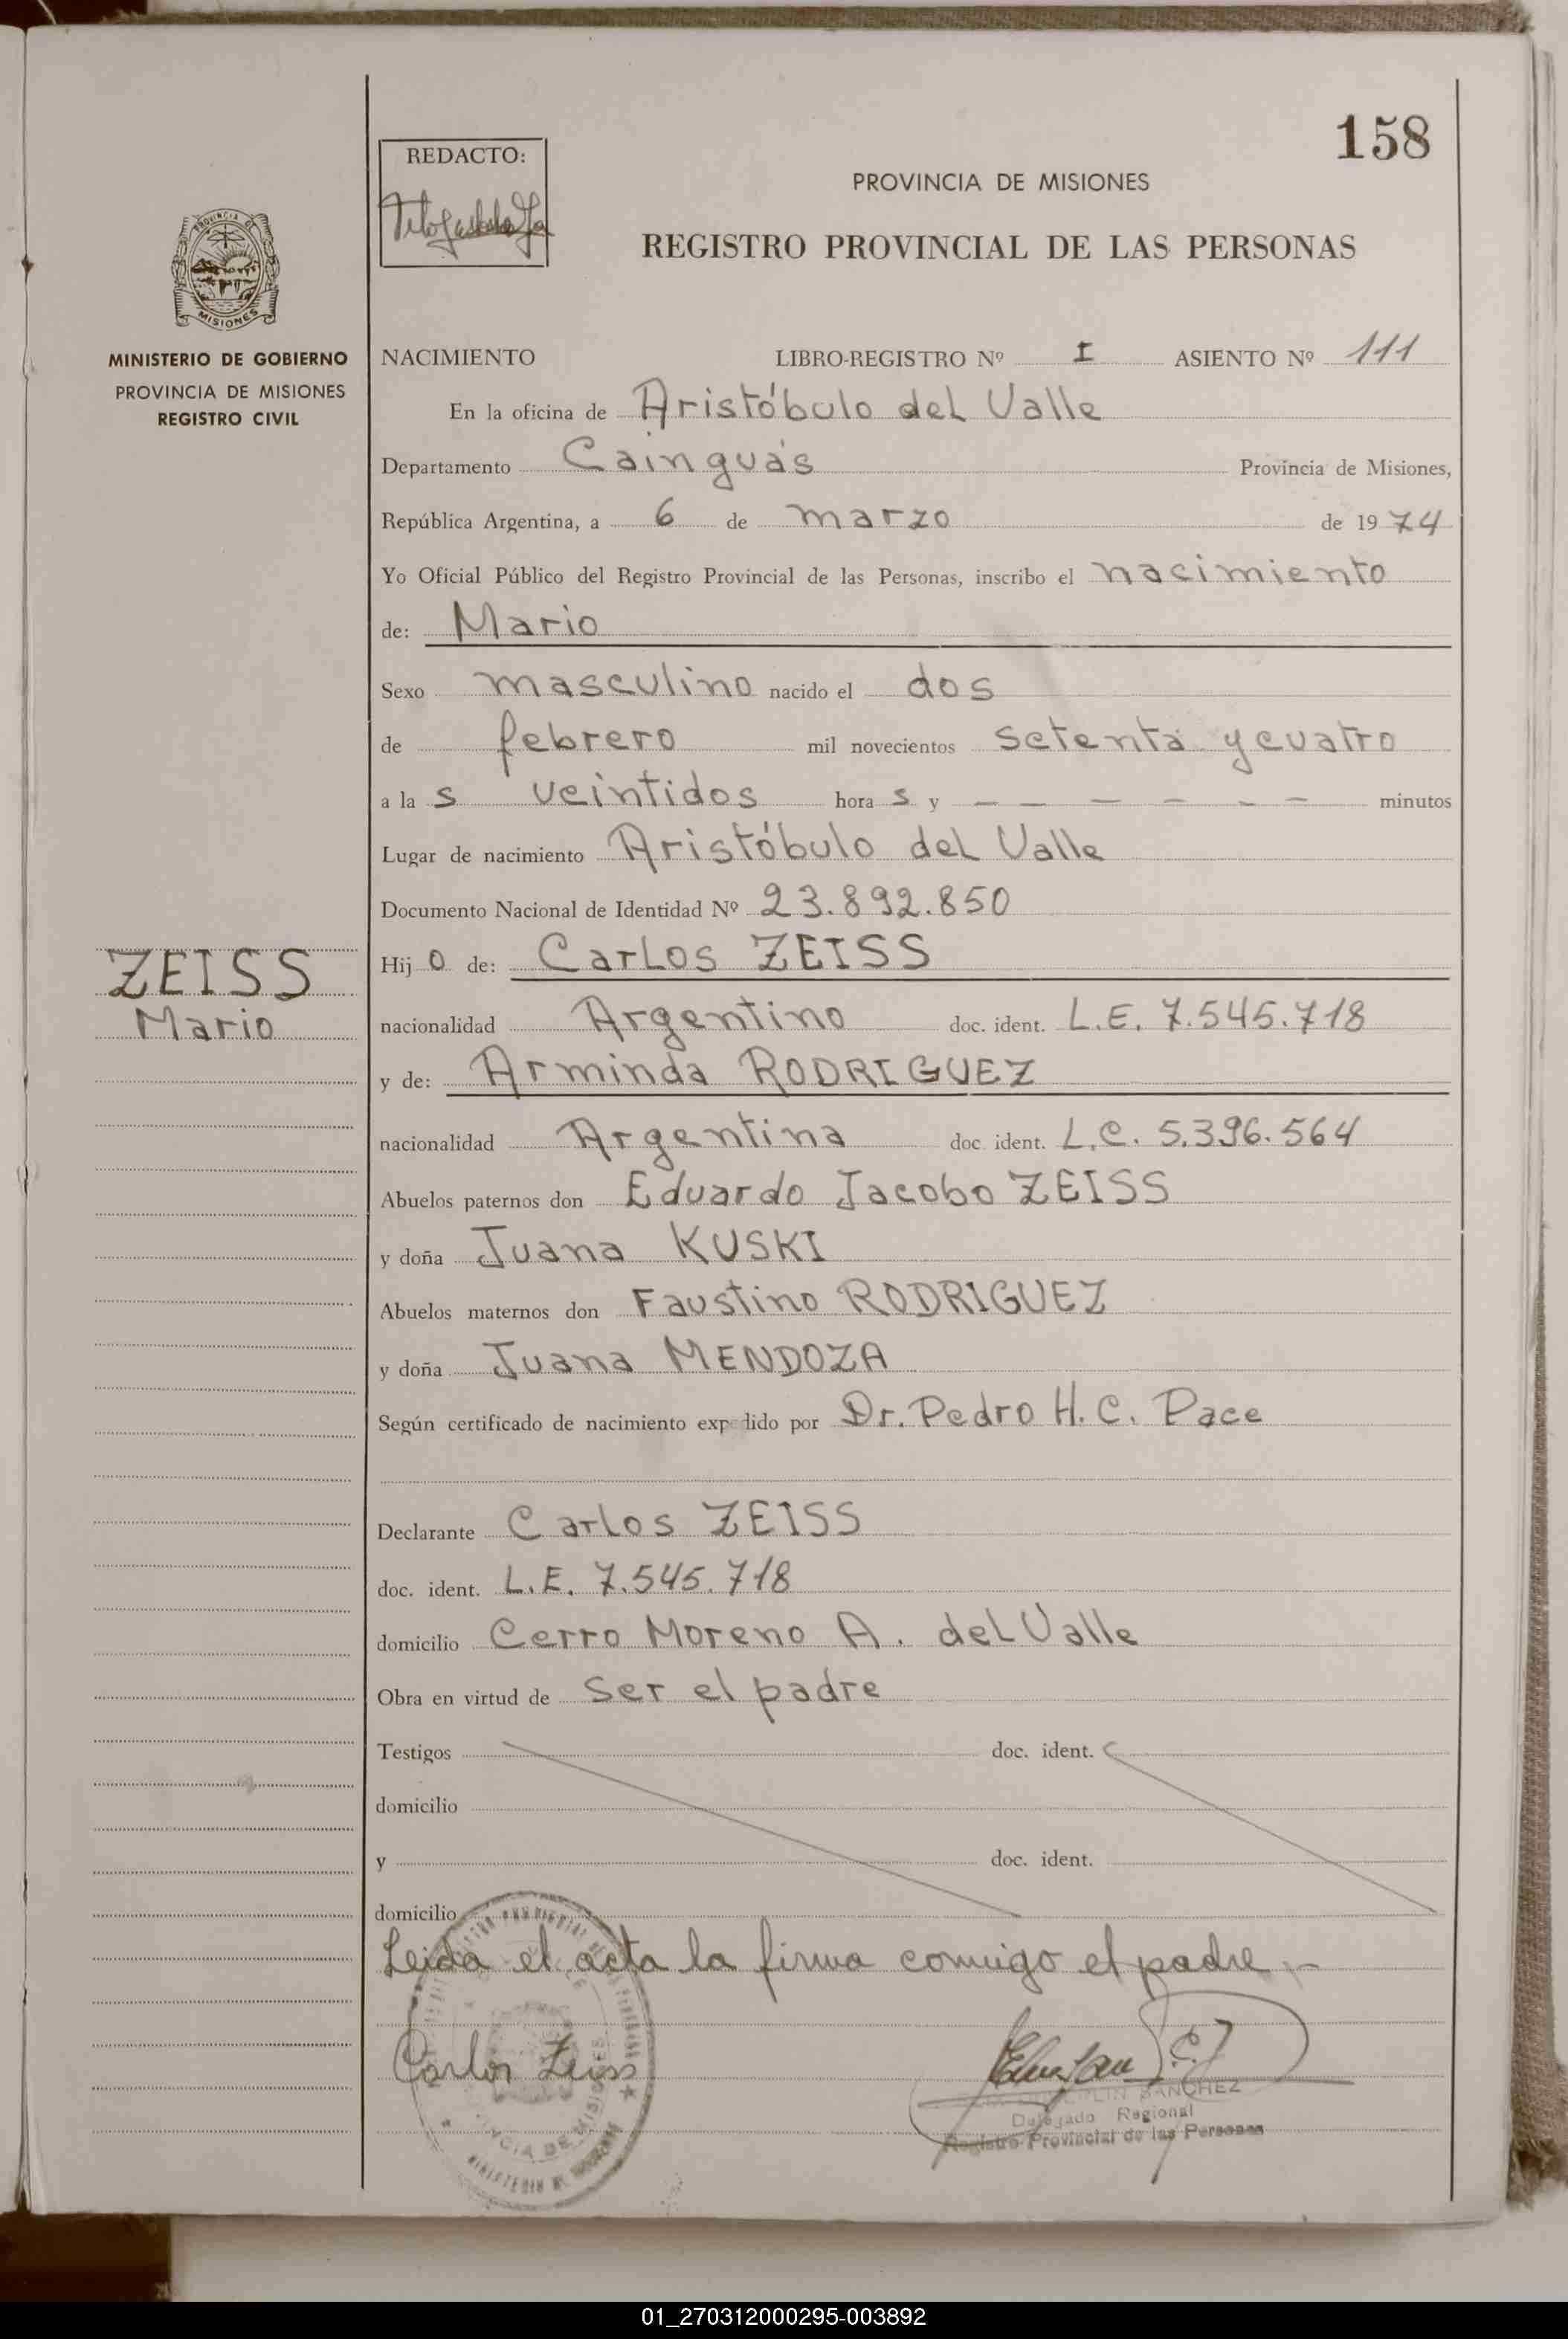 158
REDACTO:
PROVINCIA DE MISIONES
REGISTRO PROVINCIAL DE LAS PERSONAS
PROVINCIA DE
MISIONES
MINISTERIO DE GOBIERNO
PROVINCIA DE MISIONES
REGISTRO CIVIL
NACIMIENTO LIBRO-REGISTRO Nº I ASIENTO Nº 111
En la oficina de Aristóbulo del Valle
Departamento Cainguás Provincia de Misiones,
República Argentina, a 6 de marzo de 1974
Yo Oficial Público del Registro Provincial de las Personas, inscribo el nacimiento
de: Mario
Sexo masculino nacido el dos
de febrero mil novecientos setenta y cuatro
a la s veintidos hora s y — — — — — — minutos
Lugar de nacimiento Aristóbulo del Valle
Documento Nacional de Identidad Nº 23.892.850
ZEISS
Mario
Hij o de: Carlos ZEISS
nacionalidad Argentino doc. ident. L.E. 7.545.718
y de: Arminda RODRIGUEZ
nacionalidad Argentina doc. ident. L.C. 5.396.564
Abuelos paternos don Eduardo Jacobo ZEISS
y doña Juana KUSKI
Abuelos maternos don Faustino RODRIGUEZ
y doña Juana MENDOZA
Según certificado de nacimiento expedido por Dr. Pedro H. C. Pace
Declarante Carlos ZEISS
doc. ident. L.E. 7.545.718
domicilio Cerro Moreno A. del Valle
Obra en virtud de ser el padre
Testigos doc. ident.
domicilio
y doc. ident.
domicilio
Leida el acta la firma conmigo el padre.-
Carlos Zeiss
SANCHEZ
Delegado Regional
Registro Provincial de las Personas
01_270312000295-003892